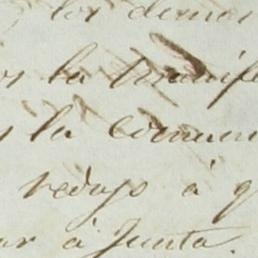 , los demas
os la manife
s la comun
redujo á q
ar á Junta.